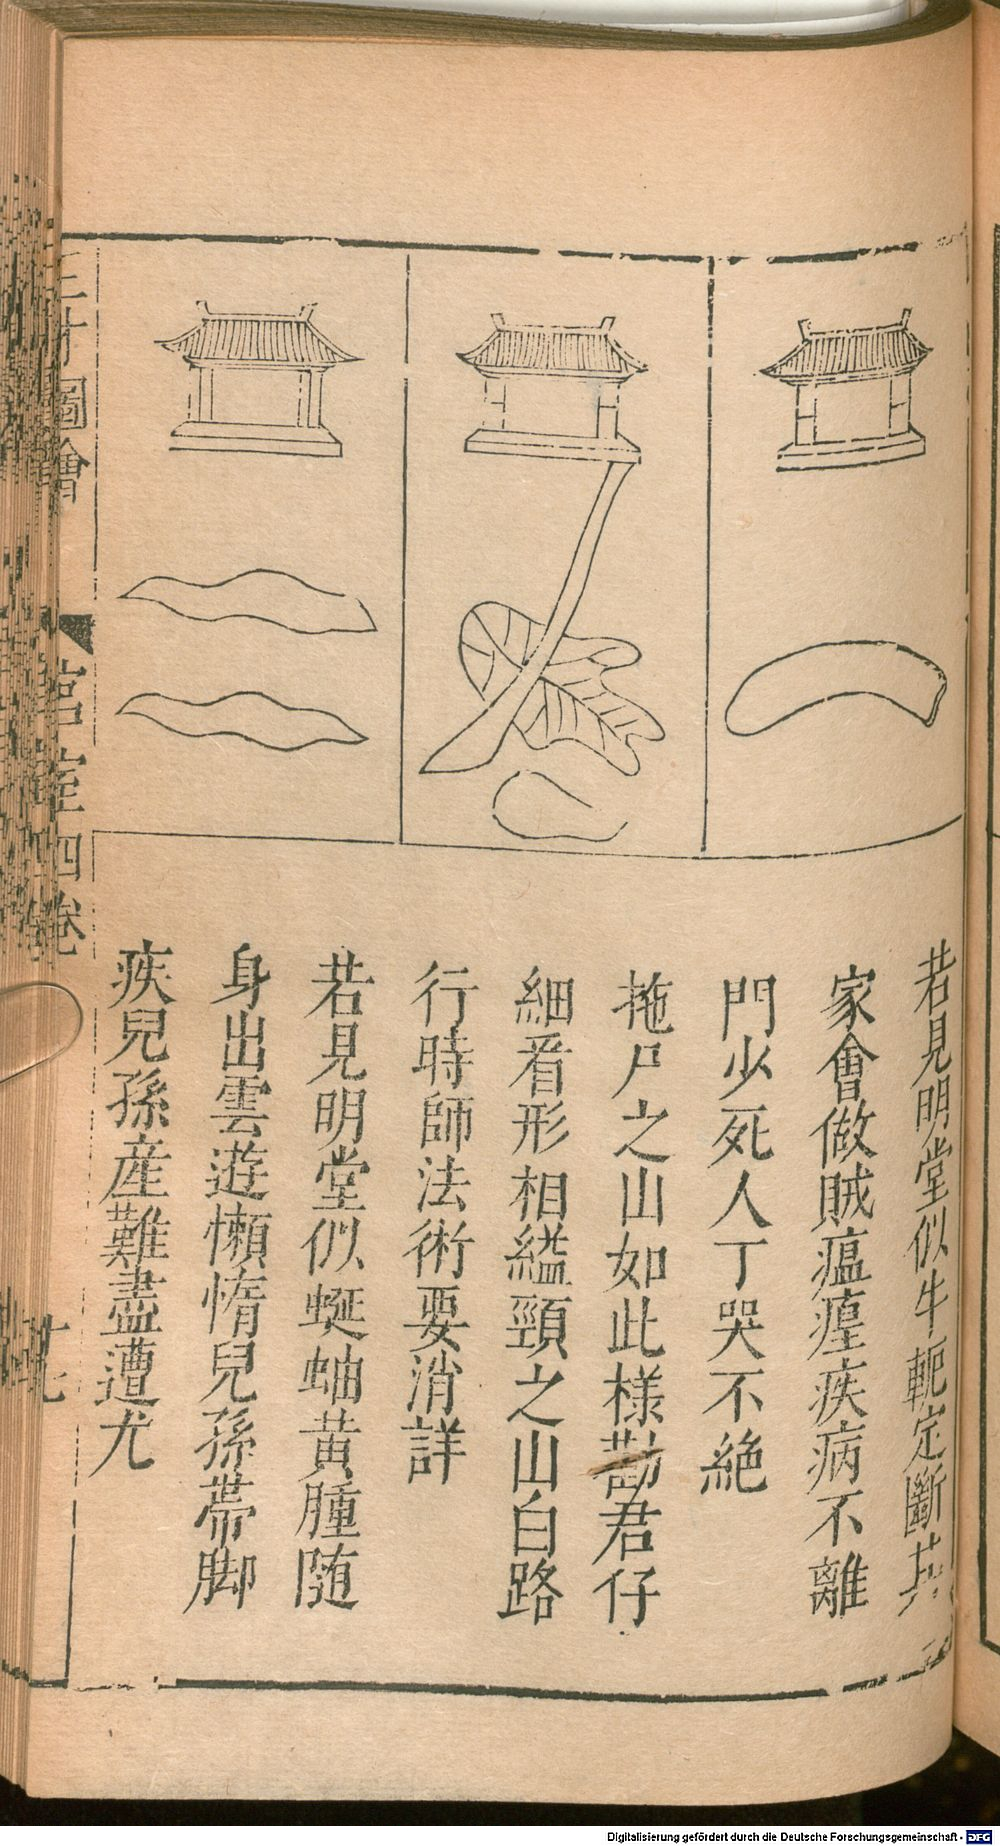 若見明堂似牛軛定斷其
家會做賊瘟𤸇疾病不離
門少死人丁哭不絕
拖尸之山如此様勸君仔
細看形相縊頸之山白路
行時師法術要消詳
若見明堂似蜒蚰黄腫随
身出雲遊懶惰兒孫帶脚
疾兒孫産難盡遭尤
三才圖會
宫室四卷
Digitalisierung gefördert durch die Deutsche Forschungsgemeinschaft - DFG